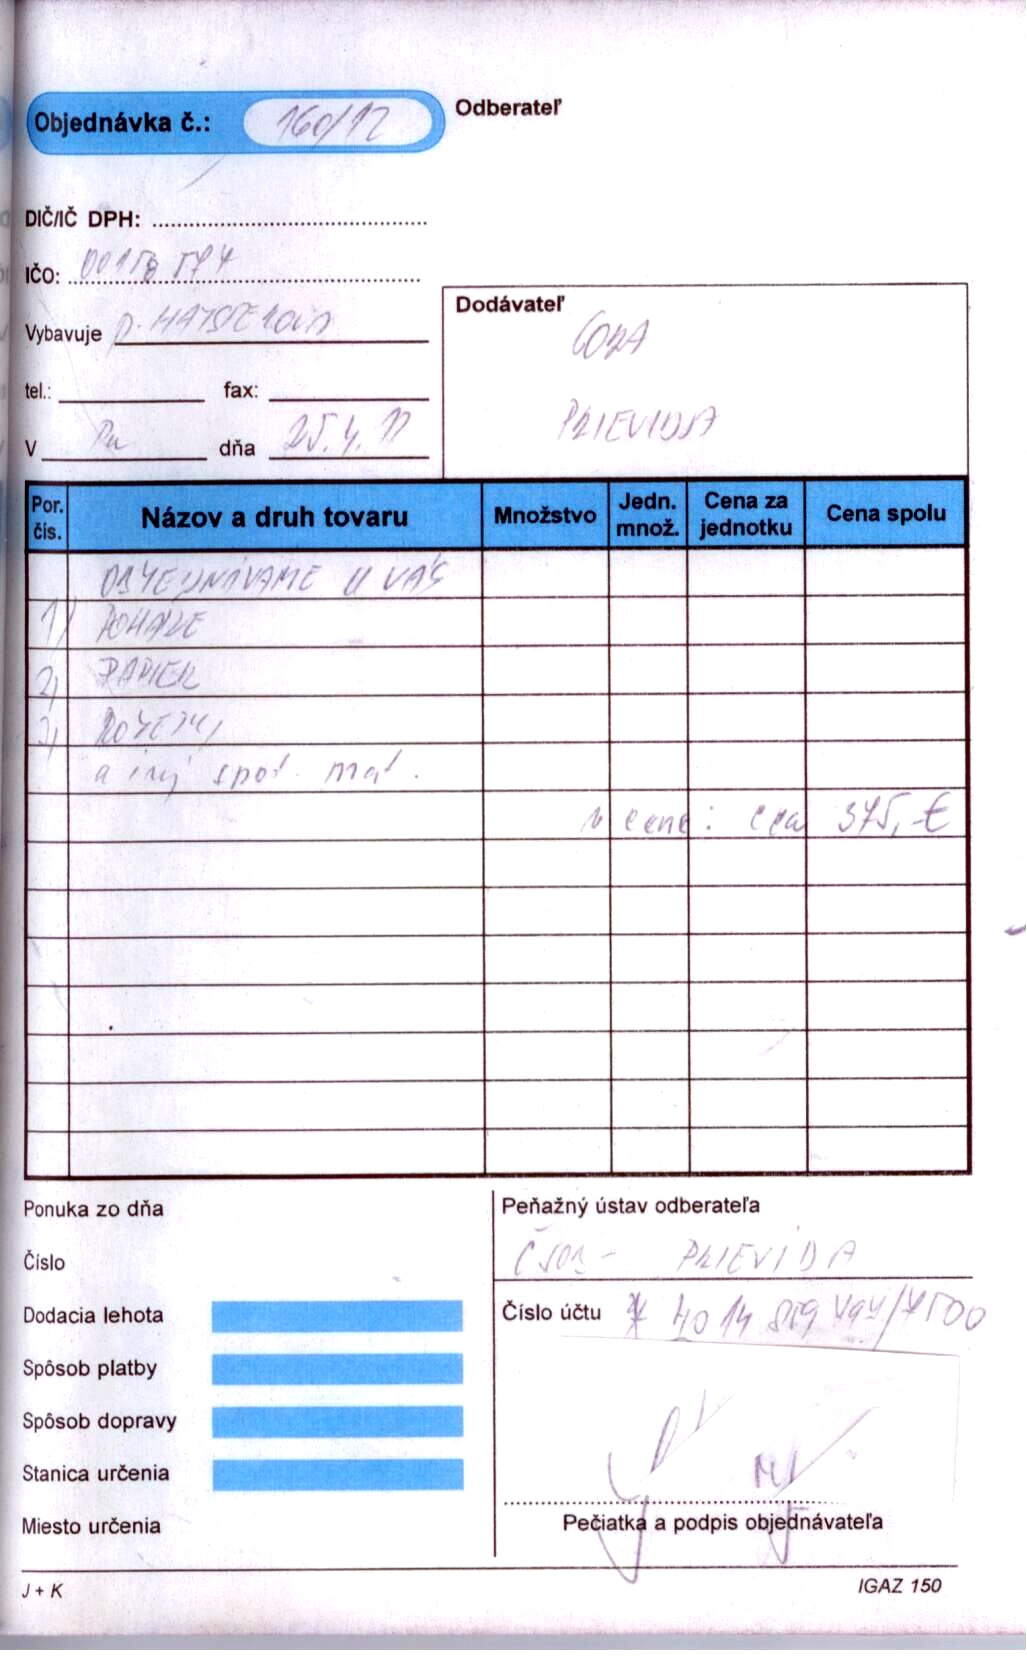 Objednávka č.: 160/12
Odberateľ
DIČ/IČ DPH:
IČO:
Vybavuje p.
tel.: fax:
V Pu dňa 25.4.
Dodávateľ
PRIEVIDZA
Por. čís. Názov a druh tovaru Množstvo Jedn. množ. Cena za jednotku Cena spolu
OBJEDNÁVAME U VÁS
1)
2) PAPIER
3)
a iný spot. mat.
v cene: cca 375,-€
Ponuka zo dňa
Číslo
Dodacia lehota
Spôsob platby
Spôsob dopravy
Stanica určenia
Miesto určenia
Peňažný ústav odberateľa
ČSOB - PRIEVIDZA
Číslo účtu
Pečiatka a podpis objednávateľa
J + K
IGAZ 150